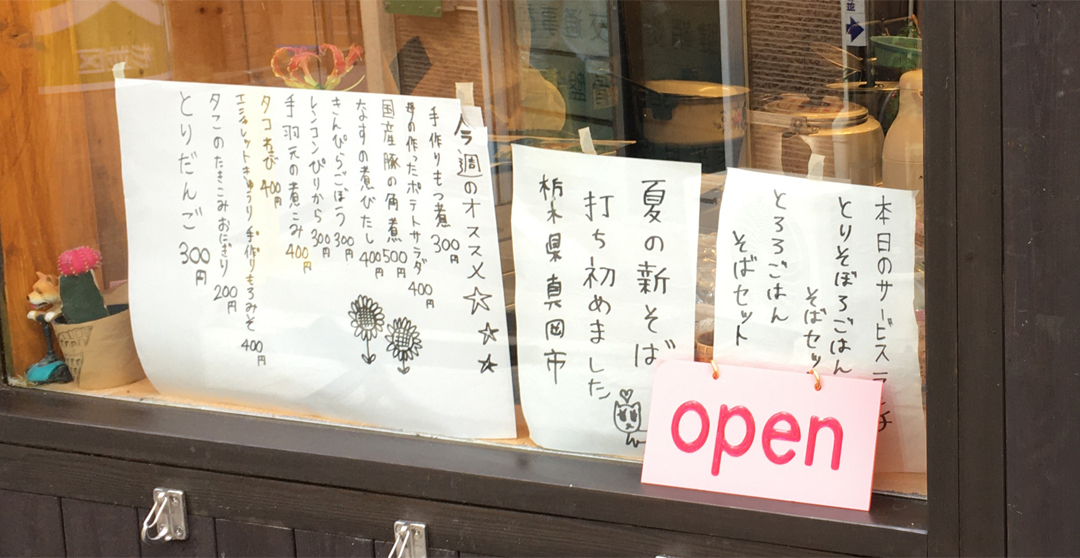 今週のオススメ☆☆☆
手作りもつ煮 300円
母の作ったポテトサラダ 400円
国産豚の角煮 500円
なすの煮びたし 400円
きんぴらごぼう 300円
レンコンぴりから 300円
手羽元の煮こみ 400円
タコわさび 400円
エシャレットきゅうり 手作りもろみそ 400円
タコのたきこみおにぎり 200円
とりだんご 300円
夏の新そば
打ち初めました
栃木県真岡市
本日のサービスランチ
とりそぼろごはん
そばセット
とろろごはん
そばセット
open